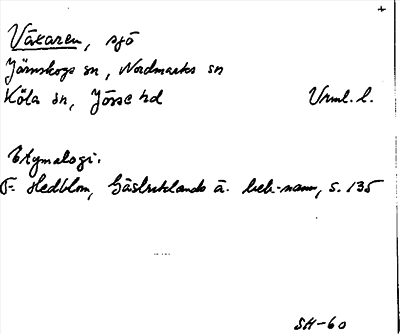 +
Växaren, sjö
Järnskogs sn, Nordmarks sn
Köla sn, Jösse hd Vrml. l.
Etymologi.
F. Hedblom, Gästriklands ä. beb-namn, s. 135
SH-60